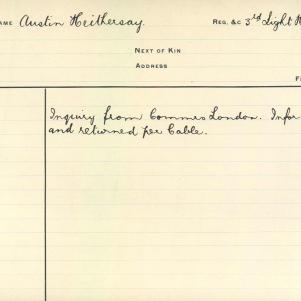 AME Austin Heithersay. Reg. &c 3rd Light H
Next of Kin
Address
F
Inquiry from Commrs London. Infor
and returned per Cable.